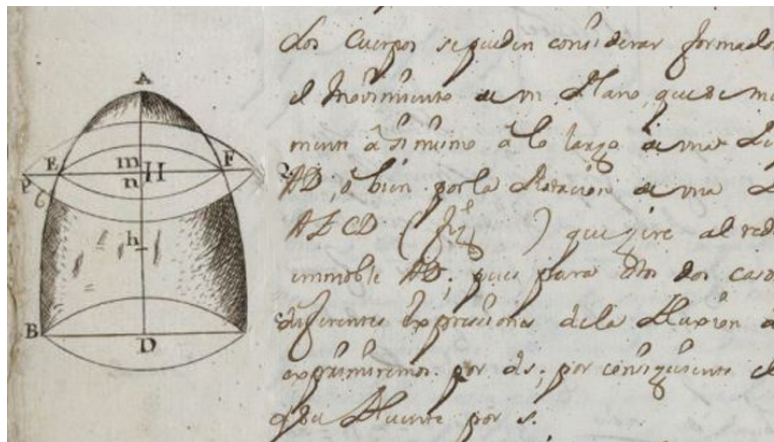 Los Cuerpos se pueden considerar formado
el Movimiento de un Plano, que se m
â si mismo â lo largo de una Li
AD, ô bien por la Rotacion de una
AECD (fig.ª ) que gire al red
immoble AD; pues para estos dos caso
diferentes expresiones de la Fluxion
exprimiremos por ds; por consiguiente el
Fluente por s.
A
P E m H F
n
h
B D